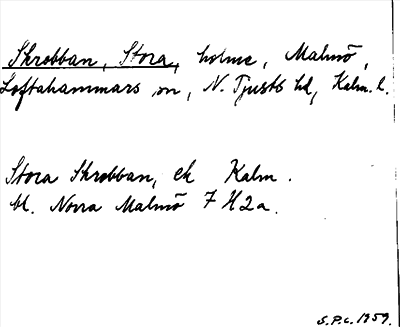 Skrobban, Stora, holme, Malmö,
Loftahammars sn, N. Tjusts hd, Kalm. l.
Stora Skrobban, ek Kalm.
bl. Norra Malmö 7 H2a.
S.P.C. 1959.